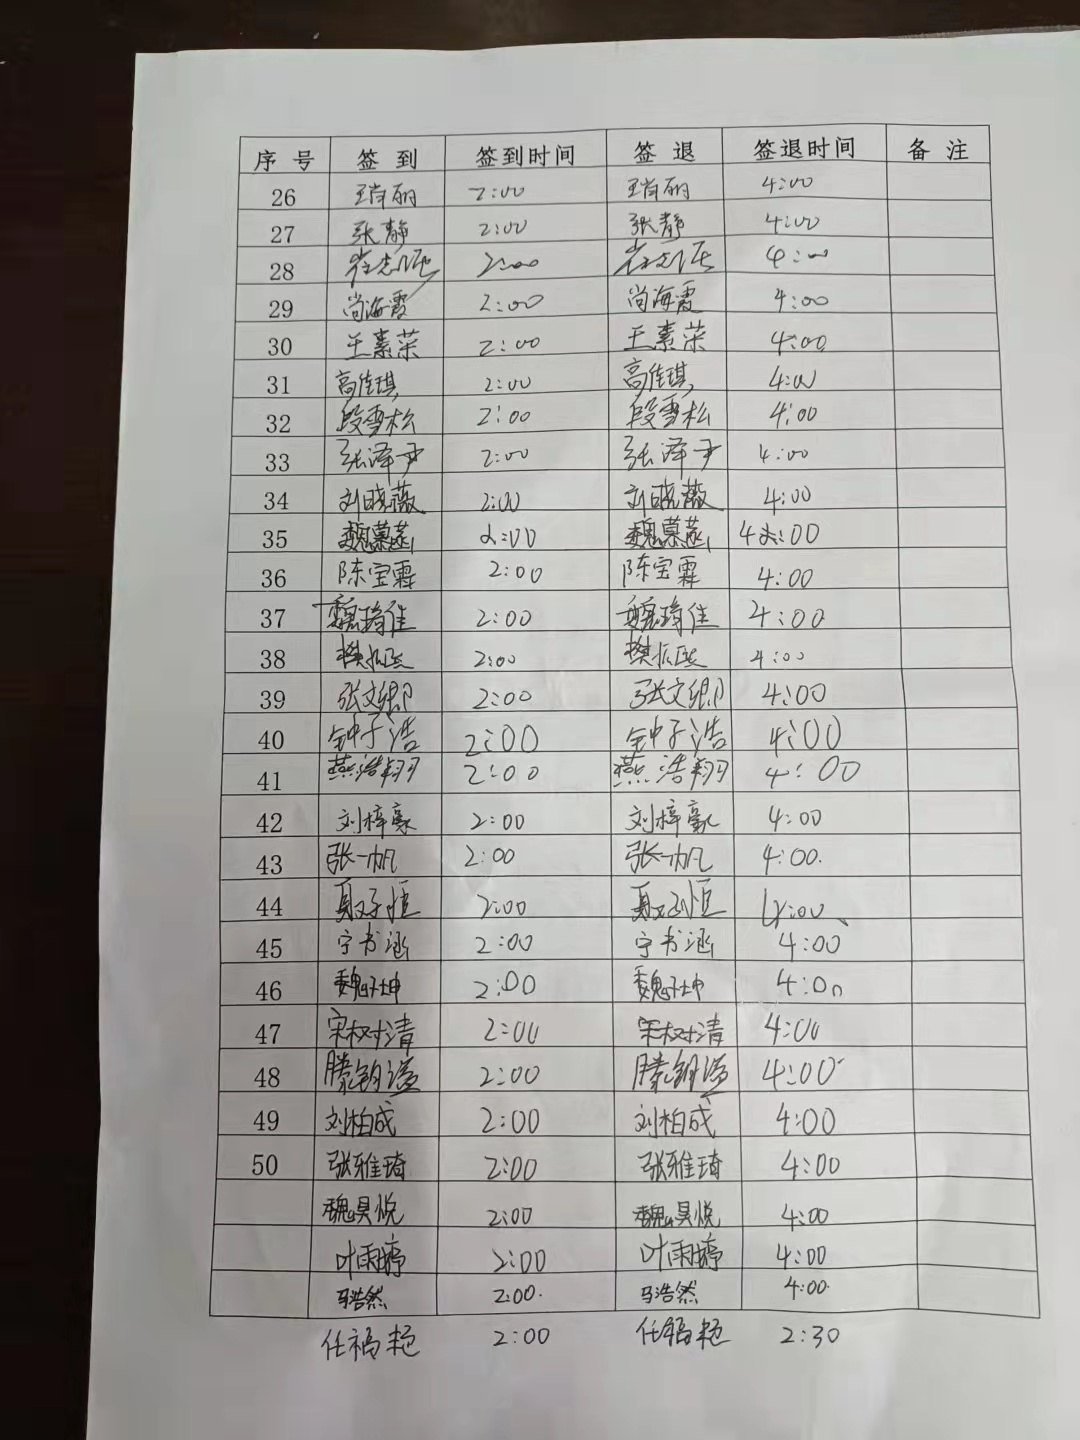 序号 签到 签到时间 签退 签退时间 备注
26 2:00 4:00
27 张静 2:00 张静 4:00
28 2:00 4:00
29 尚海霞 2:00 尚海霞 4:00
30 王素荣 2:00 王素荣 4:00
31 高佳琪 2:00 高佳琪 4:00
32 段雪松 2:00 段雪松 4:00
33 张泽尹 2:00 张泽尹 4:00
34 刘晓薇 2:00 刘晓薇 4:00
35 魏慕菡 2:00 魏慕菡 4:00
36 陈宝霖 2:00 陈宝霖 4:00
37 魏琦佳 2:00 魏琦佳 4:00
38 樊振熙 2:00 樊振熙 4:00
39 张文卿 2:00 张文卿 4:00
40 钟子浩 2:00 钟子浩 4:00
41 燕浩翔 2:00 燕浩翔 4:00
42 刘梓豪 2:00 刘梓豪 4:00
43 张一帆 2:00 张一帆 4:00.
44 夏子恒 2:00 夏子恒 4:00
45 宁书涵 2:00 宁书涵 4:00
46 魏子坤 2:00 魏子坤 4:00
47 宋树清 2:00 宋树清 4:00
48 2:00 4:00
49 刘柏成 2:00 刘柏成 4:00
50 张雅琦 2:00 张雅琦 4:00
魏昊悦 2:00 魏昊悦 4:00
叶雨婷 2:00 叶雨婷 4:00
马浩然 2:00. 马浩然 4:00.
任福艳 2:00 任福艳 2:30